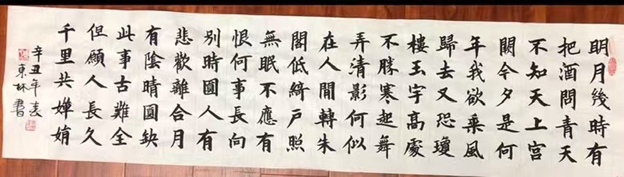 明月幾時有
把酒問青天
不知天上宮
闕今夕是何
年我欲乘風
歸去又恐瓊
樓玉宇高處
不勝寒起舞
弄清影何似
在人間轉朱
閣低綺戶照
無眠不應有
恨何事長向
別時圓人有
悲歡離合月
有陰晴圓缺
此事古難全
但願人長久
千里共嬋娟
辛丑年
東林書